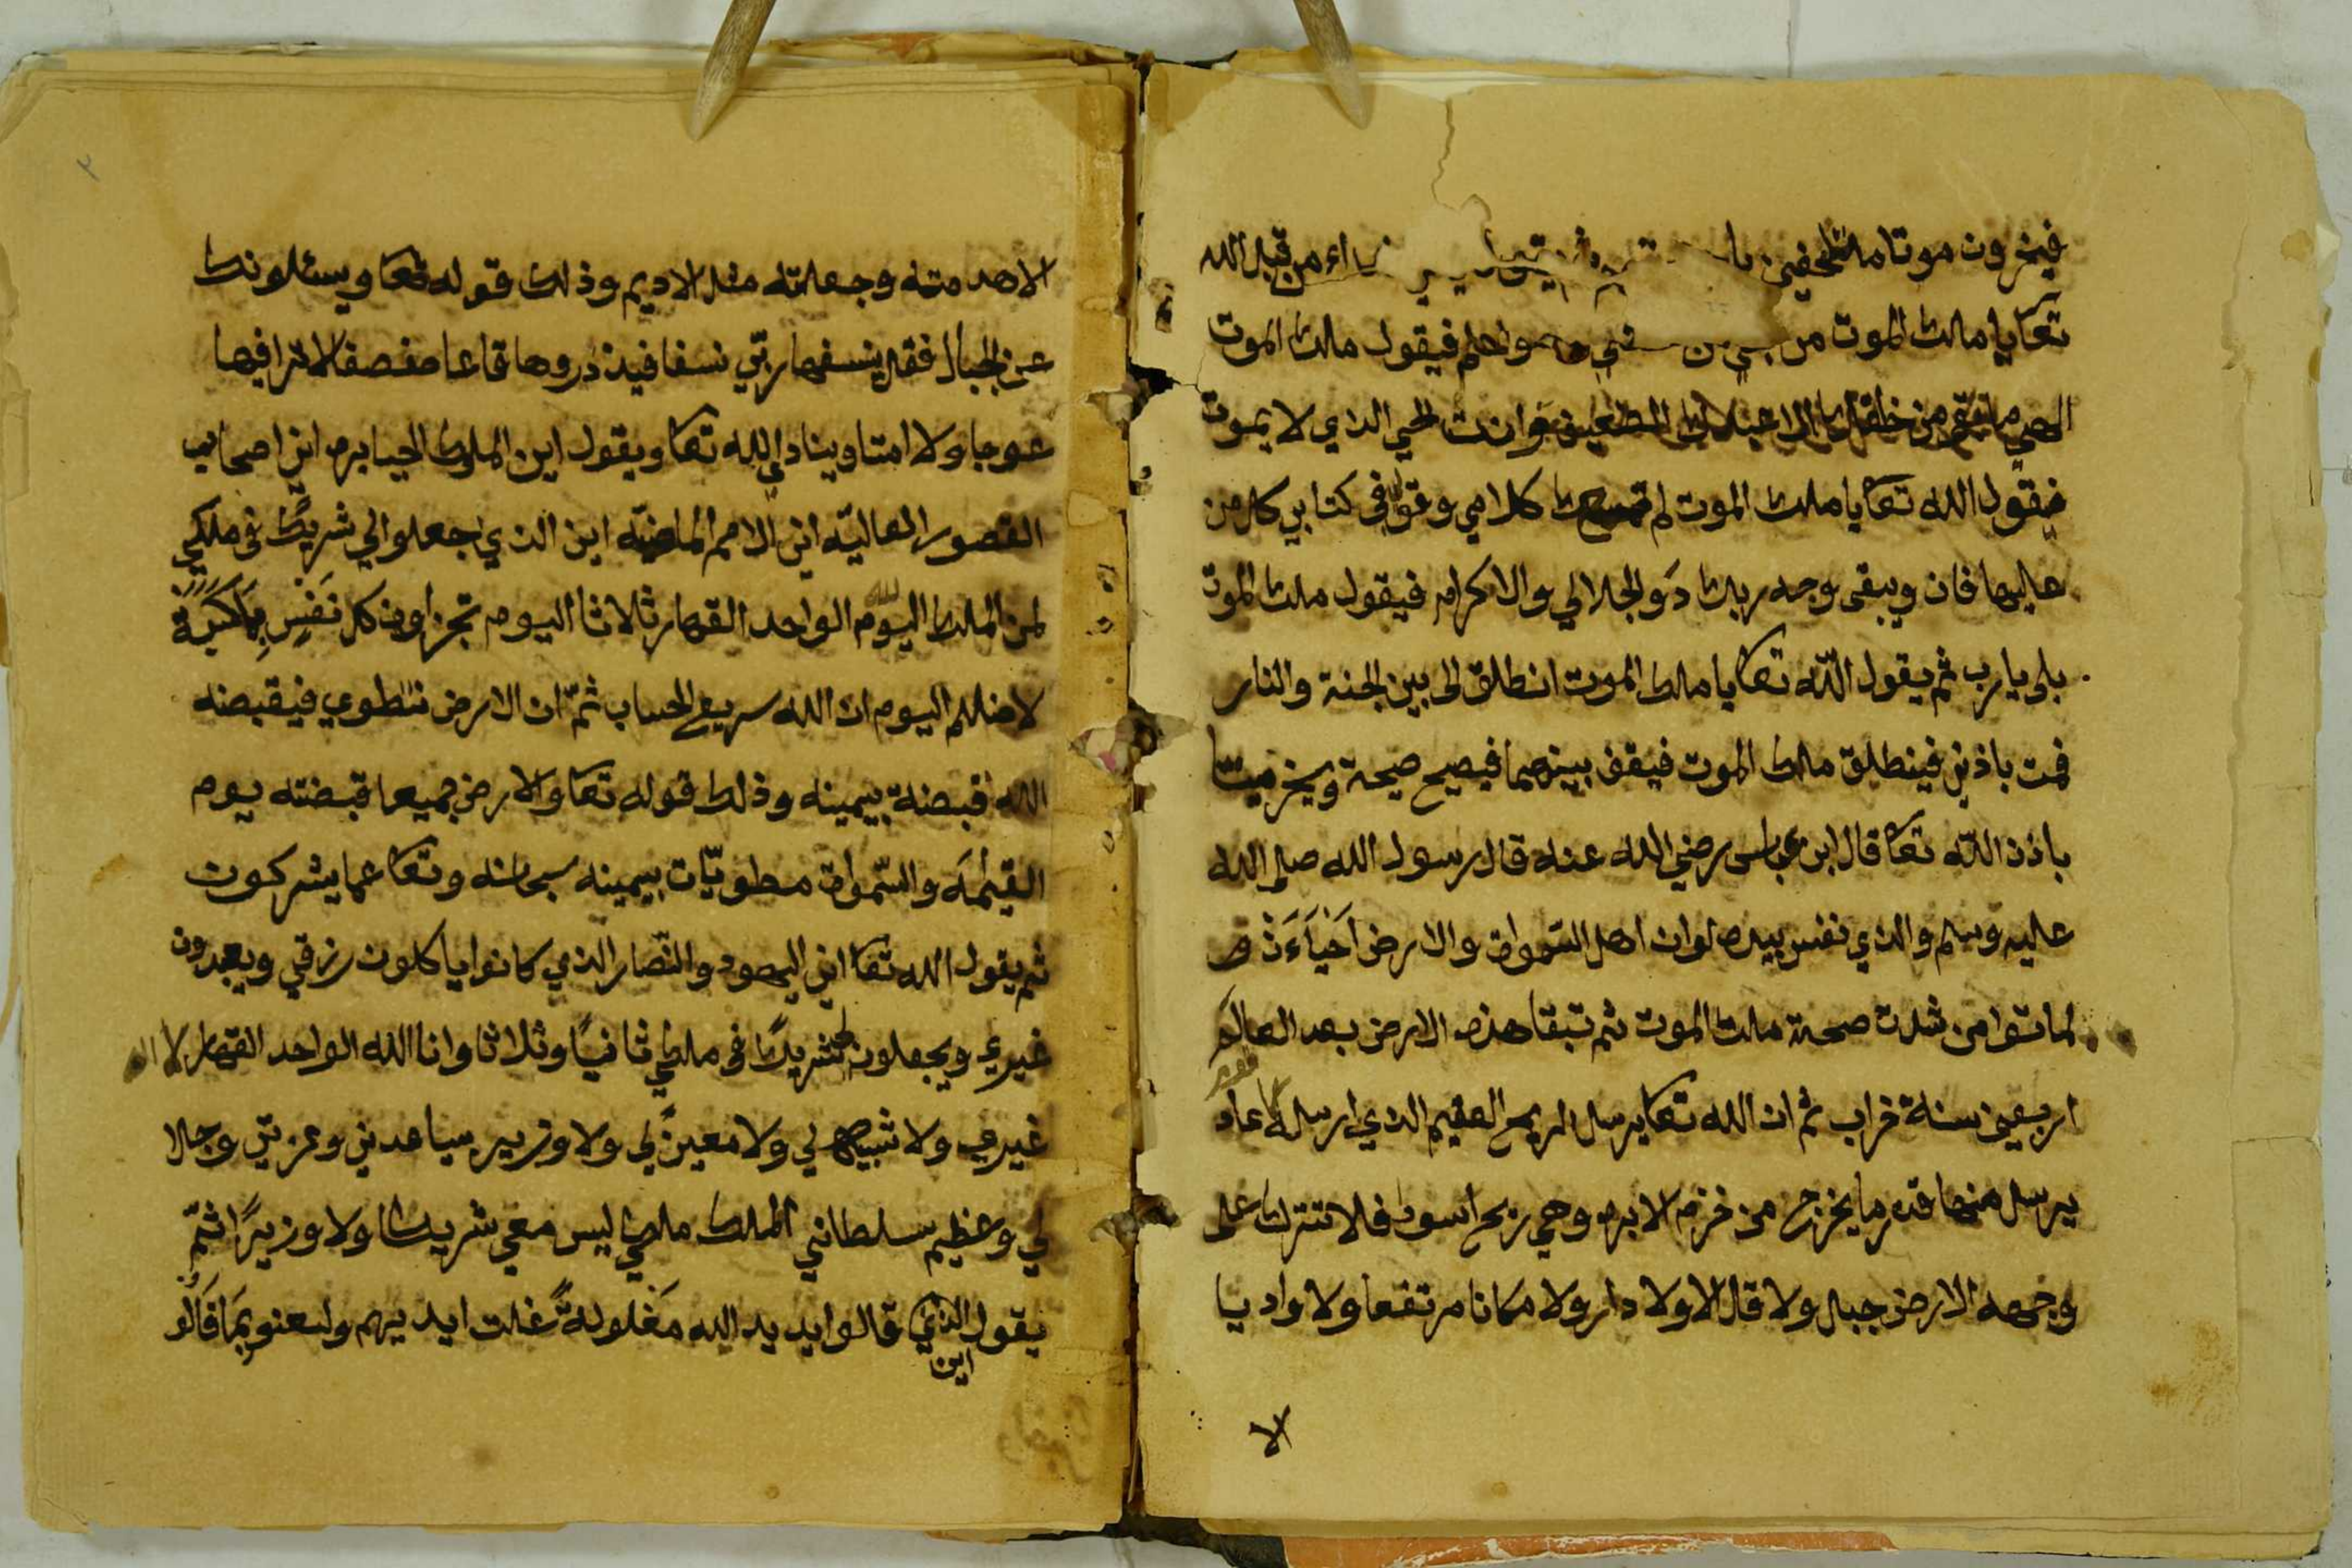 فيخرون موتا نداء من قبل الله
تعا يا مالك الموت من فيقول ملك الموت
الهي ما بقي من خلقك الا عبدك الضعيف وانت الحي الذي لا يموت
فيقول الله تعا يا ملك الموت لم تسمع كلامي وقولي في كتابي كل من
عليها فان ويبقى وجه ربك ذو الجلالي والاكرام فيقول ملك الموت
بلى يا رب ثم يقول الله تعا يا ملك الموت انطلق الى بين الجنة والنار
فمت باذني فينطلق ملك الموت فيقف بينهما فيصيح صيحة ويخر ميتا
باذن الله تعا قال ابن عباس رضي الله عنه قال رسول الله صلى الله
عليه وسلم والذي نفس بيده لوان اهل السموات والارض احياء
لماتوا من شدت صحة ملك الموت ثم تبقا هذه الارض بعد العالم
اربعين سنة خراب ثم ان الله تعا يرسل الريح العقيم الذي ارسله عاد
يرسل منها قدر ما يخرج من خرم الابره وهي ريح اسود فلا تترك على
وجهه الارض جبال ولا قلالا ولا دار ولا مكانا مرتفعا ولا واديا
لا
الاهدمته وجعلته مثل الاديم وذلك قوله تعا ويسئلونك
عن الجبال فقل ينسفها ربي نسفا فيذروها قاعا صفصفا لا ترا فيها
عوجا ولا امتا وينادي الله تعا ويقول اين الملوك الجبابره اين اصحاب
القصور العاليه اين الامم الماضيه اين الذي اجعلوا لي شريك في ملكي
لمن الملك اليوم لله الواحد القهار ثلاثا اليوم تجزاون كل نفس بما كسبة
لا ضلم اليوم ان الله سريع الحساب ثم ان الارض تنطوي فيقبضه
الله قبضة بيمينه وذلك قوله تعا والارض جميعا قبضته يوم
القيمه والسموات مطويات بيمينه سبحانه وتعا عما يشركون
ثم يقول الله تعا اين اليهود والنصار الذي كانوا ياكلون رزقي ويعبدون
غيري ويجعلون لي شريكا في ملكي ثانيا وثلاثا وانا الله الواحد القهار لا اله
غيري ولا شبيه لي ولا معين لي ولا وزير يساعدني وعزتي وجلا
لي وعظيم سلطاني الملك ملكي ليس معي شريك ولا وزيرا ثم
يقول اين الذي قالوا يد يد الله مغلولة غلت ايديهم ولعنو بما قالو